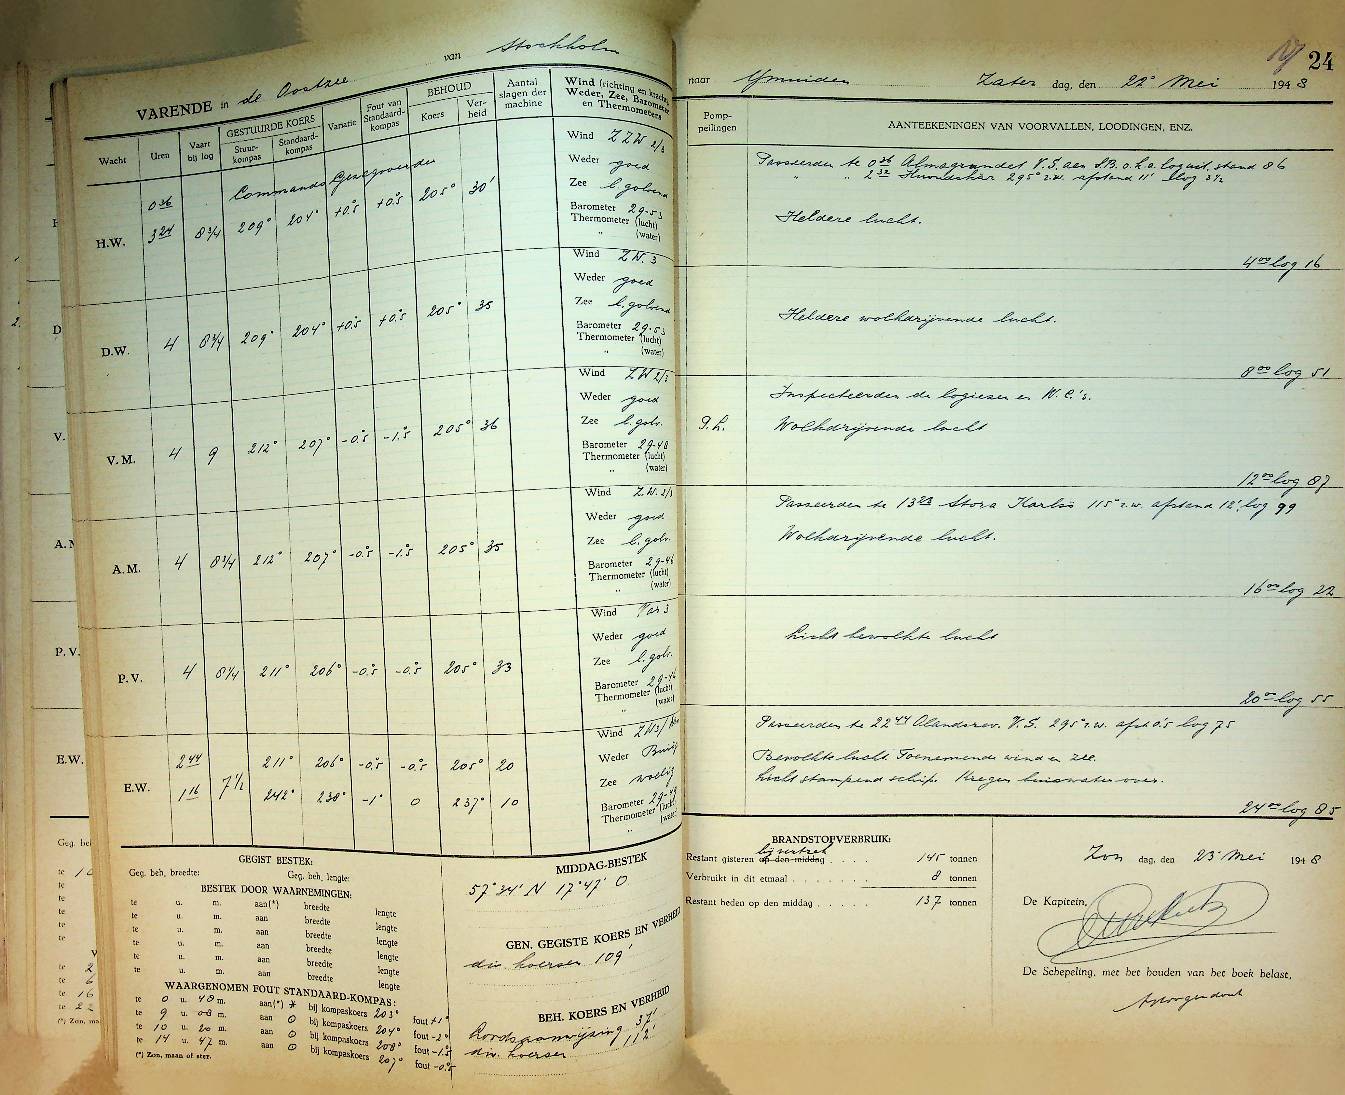 VARENDE in de Oostzee van Stockholm
Wacht Uren Vaart bij log GESTUURDE KOERS Stuur-kompas Standaard-kompas Variatie Fout van Standaard-kompas BEHOUD Koers Ver-heid Aantal slagen der machine Wind (richting en kracht) Weder, Zee, Barometer en Thermometers
0 36 Commando Gereguleerder
H.W. 3 24 8 3/4 209° 204° +0.5 +0.5 205° 30'
Wind ZZW 2/3
Weder goed
Zee l. golvend
Barometer 29-53
Thermometer (lucht)
" (water)
D.W. 4 8 3/4 209° 204° +0.5 +0.5 205° 35
Wind ZW. 3
Weder goed
Zee l. golvend
Barometer 29-53
Thermometer (lucht)
" (water)
V.M. 4 9 212° 207° -0.5 -1.5 205° 36
Wind ZW 2/3
Weder goed
Zee l. golv.
Barometer 29-48
Thermometer (lucht)
" (water)
A.M. 4 8 3/4 212° 207° -0.5 -1.5 205° 35
Wind ZW. 2/3
Weder goed
Zee l. golv.
Barometer 29-46
Thermometer (lucht)
" (water)
P.V. 4 8 1/4 211° 206° -0.5 -0.5 205° 33
Wind Var 3
Weder goed
Zee l. golv.
Barometer 29-46
Thermometer (lucht)
" (water)
E.W. 2 44 7 1/2 211° 206° -0.5 -0.5 205° 20
1 16 242° 238° -1° 0 237° 10
Wind
Weder Buiig
Zee woelig
Barometer 29-49
Thermometer (lucht)
" (water)
GEGIST BESTEK:
Geg. beh, breedte: Geg. beh, lengte:
BESTEK DOOR WAARNEMINGEN:
te u. m. aan(*) breedte lengte
te u. m. aan breedte lengte
te u. m. aan breedte lengte
te u. m. aan breedte lengte
te u. m. aan breedte lengte
te u. m. aan breedte lengte
WAARGENOMEN FOUT STANDAARD-KOMPAS:
te 0 u. 40 m. aan(*) * bij kompaskoers 203° fout +1°
te 9 u. 08 m. aan O bij kompaskoers 204° fout -2°
te 10 u. 20 m. aan O bij kompaskoers 208° fout -1.5
te 14 u. 47 m. aan O bij kompaskoers 207° fout -0.5
(*) Zon, maan of ster.
MIDDAG-BESTEK
57° 34' N 17° 47' O
GEN. GEGISTE KOERS EN VERHEID
div. koersen 109'
BEH. KOERS EN VERHEID
Loodsaanwijzing 37'
div. koersen 112'
naar Ymuiden Zater dag, den 22e Mei 1948
24
Pomp-peilingen AANTEEKENINGEN VAN VOORVALLEN, LOODINGEN, ENZ.
Passeerden te 0 36 Almagrundet V.S. aan SB. o.k.a. log uit. stand 86
" " 2 32 Huvudskär 295° r.w. afstand 11' log 3 1/2
Heldere lucht.
4 00 log 16
Heldere wolkdrijvende lucht.
8 00 log 51
Inspecteerden de logiesen en W.C's.
P.L. Wolkdrijvende lucht
12 00 log 87
Passeerden te 13 23 Stora Karlsö 115° r.w. afstand 12'. log 99
Wolkdrijvende lucht.
16 00 log 22
Licht bewolkte lucht
20 00 log 55
Passeerden te 22 44 Ölandsrev. V.S. 295° r.w. afst 0.5 log 75
Bewolkte lucht. Toenemende wind en zee.
Licht stampend schip. Kregen buiswater over.
24 00 log 85
BRANDSTOFVERBRUIK:
bij vertrek
Restant gisteren op den middag 145 tonnen
Verbruikt in dit etmaal 8 tonnen
Restant heden op den middag 137 tonnen
Zon dag, den 23 Mei 1948
De Kapitein,
De Schepeling, met het houden van het boek belast,